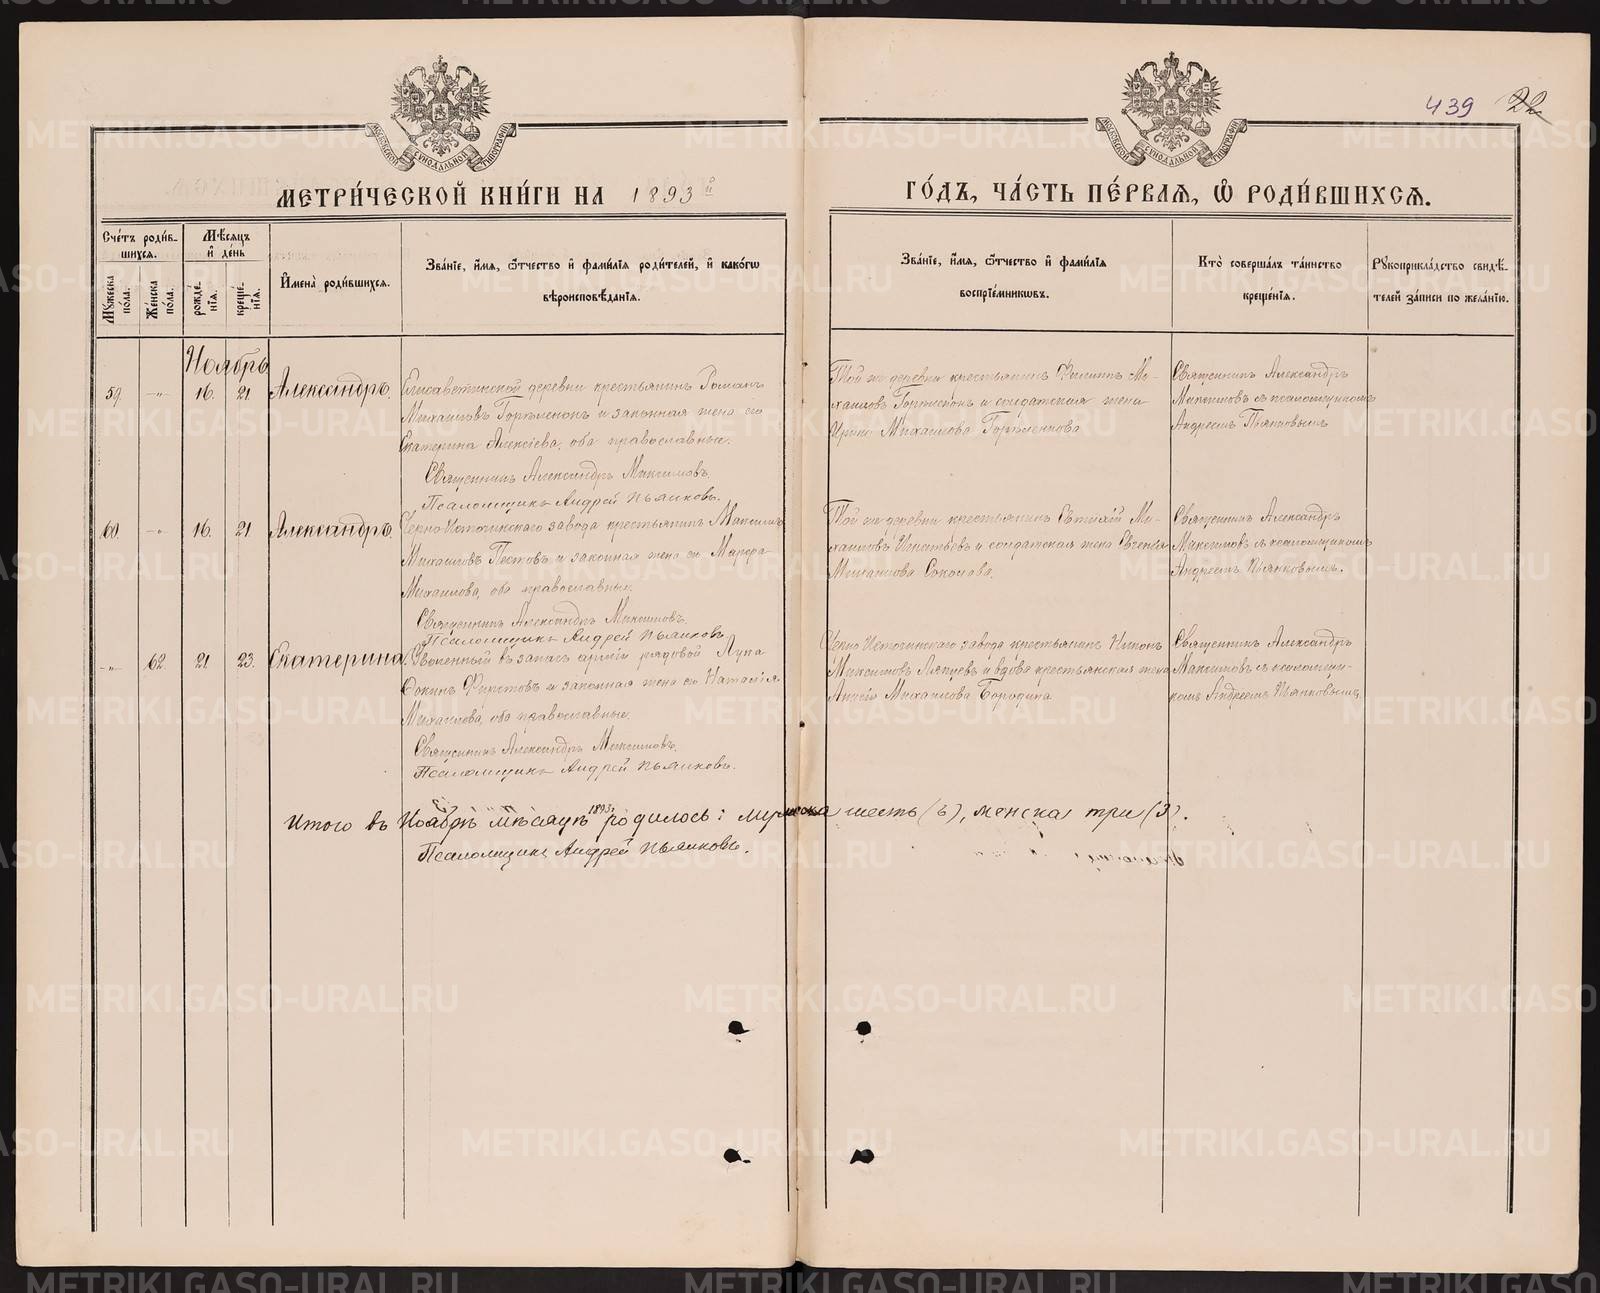 439 22
МЕТРИ́ЧЕСКОЙ КНИ́ГИ НА 1893й
ГО́ДЪ, ЧА́СТЬ ПЕ́РВАЯ, Ѿ РОДИ́ВШИХСЯ.
Сче́тъ роди́в-
шихся.
Мѣсяцъ
и҆ де́нь
Мꙋжеска
по́ла.
Женска
по́ла.
рожде́-
нїя.
креще́-
нїя.
И҆мена̀ роди́вшихся.
Зва́нїе, и҆́мя, ѻ҆́тчество и҆ фами́лїя роди́телей, и҆ како́гѡ
вѣроисповѣ́данїя.
Зва́нїе, и҆́мя, ѻ҆́тчество и҆ фами́лїя
воспрїе́мниковъ.
Кто̀ соверша́лъ та́инство
креще́нїя.
Рꙋкоприкла́дство свидѣ́-
телей за́писи по жела́нїю.
Ноябрь
59. -„- 16. 21 Александръ.
Елисаветинской деревни крестьянинъ Романъ
Михаиловъ Горѣленковъ и законная жена его
Екатерина Алексіева, оба православные.
Священникъ Александръ Максимовъ.
Псаломщикъ Андрей Пьянковъ.
Той же деревни крестьянинъ Филиппъ Ми-
хаиловъ Горѣленковъ и солдатская жена
Ирина Михаилова Горѣленкова
Священникъ Александръ
Максимовъ съ псаломщикомъ
Андреемъ Пьянковымъ
60. -„- 16. 21 Александръ.
Черно-Источинскаго завода крестьянинъ Максимъ
Михаиловъ Пестовъ и законная жена его Марфа
Михаилова, оба православные.
Священникъ Александръ Максимовъ.
Псаломщикъ Андрей Пьянковъ.
Той же деревни крестьянинъ Евтихій Ми-
хаиловъ Игнатьевъ и солдатская жена Евгенія
Михаилова Соколова.
Священникъ Александръ
Максимовъ съ псаломщикомъ
Андреемъ Пьянковымъ.
-„- 62 21 23. Екатерина.
Уволенный въ запасъ арміи рядовой Лука
Фокинъ и законная жена его Наталія
Михаилова, оба православные.
Священникъ Александръ Максимовъ.
Псаломщикъ Андрей Пьянковъ.
Черно Источинскаго завода крестьянинъ Никонъ
Максимовъ Ляпцевъ и вдова крестьянская жена
Михаилова Бородина
Священникъ Александръ
Максимовъ съ псаломщи-
комъ Андреемъ Пьянковымъ.
Итого въ Ноябрѣ мѣсяцѣ 1893г. родилось: мужеска шесть (6), женска три (3).
Псаломщикъ Андрей Пьянковъ.
METRIKI.GASO-URAL.RU